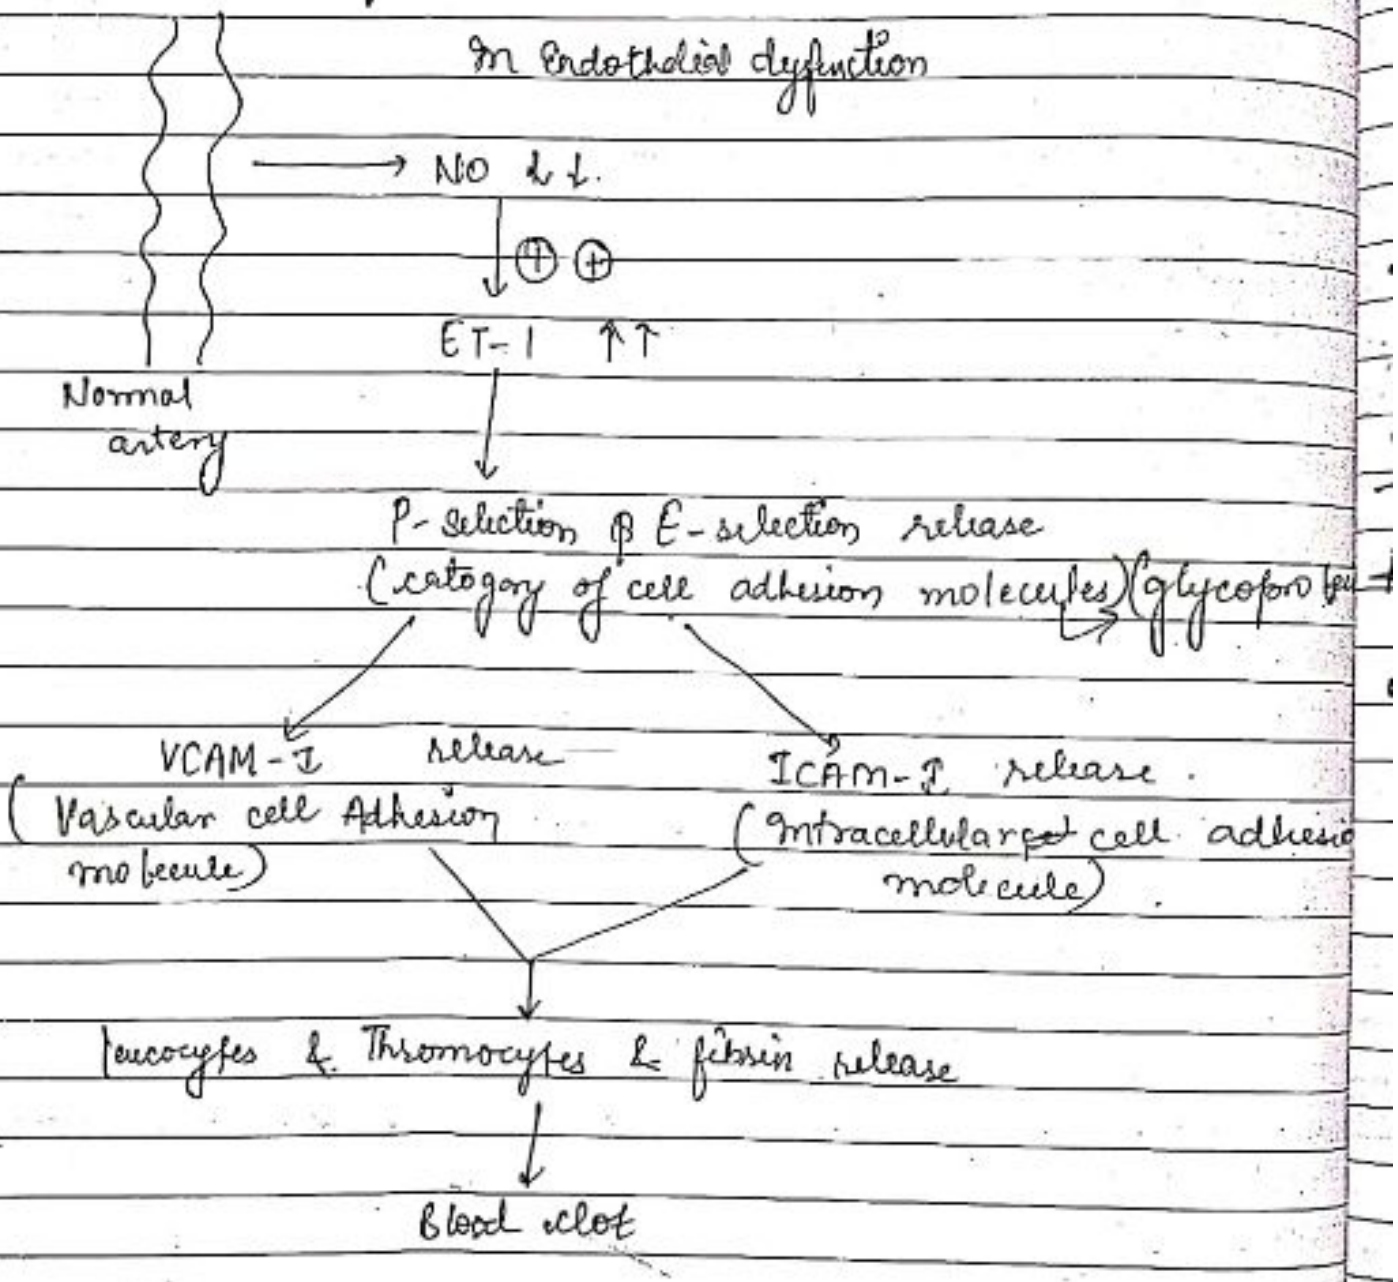 In Endothelial dyfunction
NO ↓↓.
⊕ ⊕
ET-1 ↑↑
Normal
artery
P-selection & E-selection release
(catogory of cell adhesion molecules) (glycoprotei
VCAM-I release
ICAM-I release.
(Vascular cell Adhesion
molecule)
(Intracellular cell adhesio
molecule)
leucocytes & Thromocytes & fibrin release
Blood clot